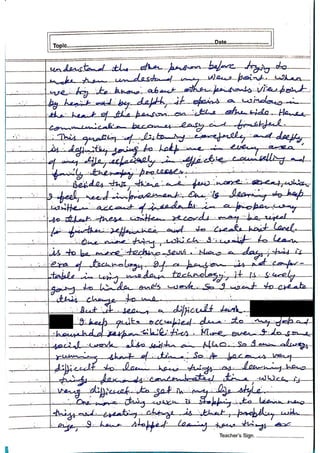 Topic Date
understand the other person before trying to
make them understand my view point. When
we try to know about other persons view point
by heart and by depth, it opens a window in
the heart of the person on the other side. Hence
communication becomes easy and fruitful.
This quality of listening carefully and deeply,
is definitely going to help me in every area
of my life, especially in effective counselling and
family therapy processes.
Besides this, there are few more areas, which
I feel, need improvement. One is learning to keep
written account of incidents in a proper way
so that these written records may be used
for further reference and to create next level.
One more thing, which I want to learn
is to be more techno-savi. Now a days, this is
era of technology. If a person is not comfor-
table in using modern technology, it is surely
going to hinder one's work. So I want to create
this change to me.
But it seems a difficult task.
I keep quite occupied due to my job and
household responsibilities. More over I do some
social work also within an NGO. So I am always
running short of time. So it becomes very
difficult to learn new things as learning new
things demands concentrated time which is
very difficult to get in my life style.
One more thing which is stopping to learn new
things and creating change is that, probably with
age, I have stopped learning new things or
Teacher's Sign